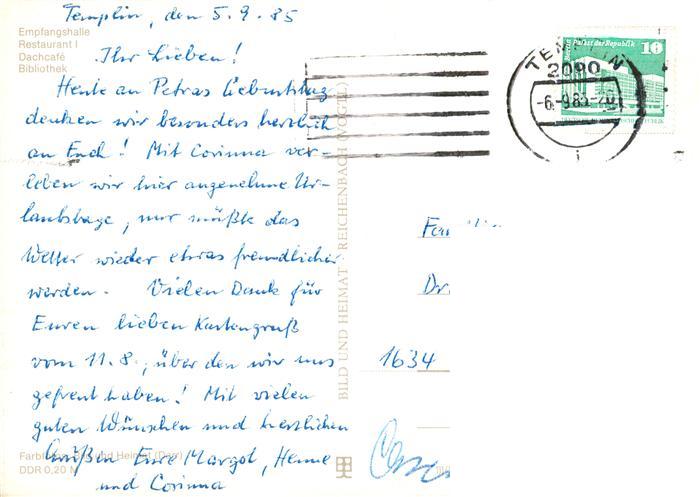 Templin, den 5.9.85
Empfangshalle
Restaurant I
Dachcafé
Bibliothek
Ihr Lieben!
Heute an Petras Geburtstag
denken wir besonders herzlich
an Euch! Mit Corinna ver-
leben wir hier angenehme Ur-
laubstage, nur müßte das
Wetter wieder etwas freundlicher
werden. Vielen Dank für
Euren lieben Kartengruß
vom 11.8., über den wir uns
gefreut haben! Mit vielen
guten Wünschen und herzlichen
Grüßen Eure Margot, Henne
und Corinna
DDR 0,20 M
BILD UND HEIMAT REICHENBACH (VOGTL)
Palast der Republik 10
TEMPLIN
2090
-6.-9.85-20
Fam
Dr.
1634